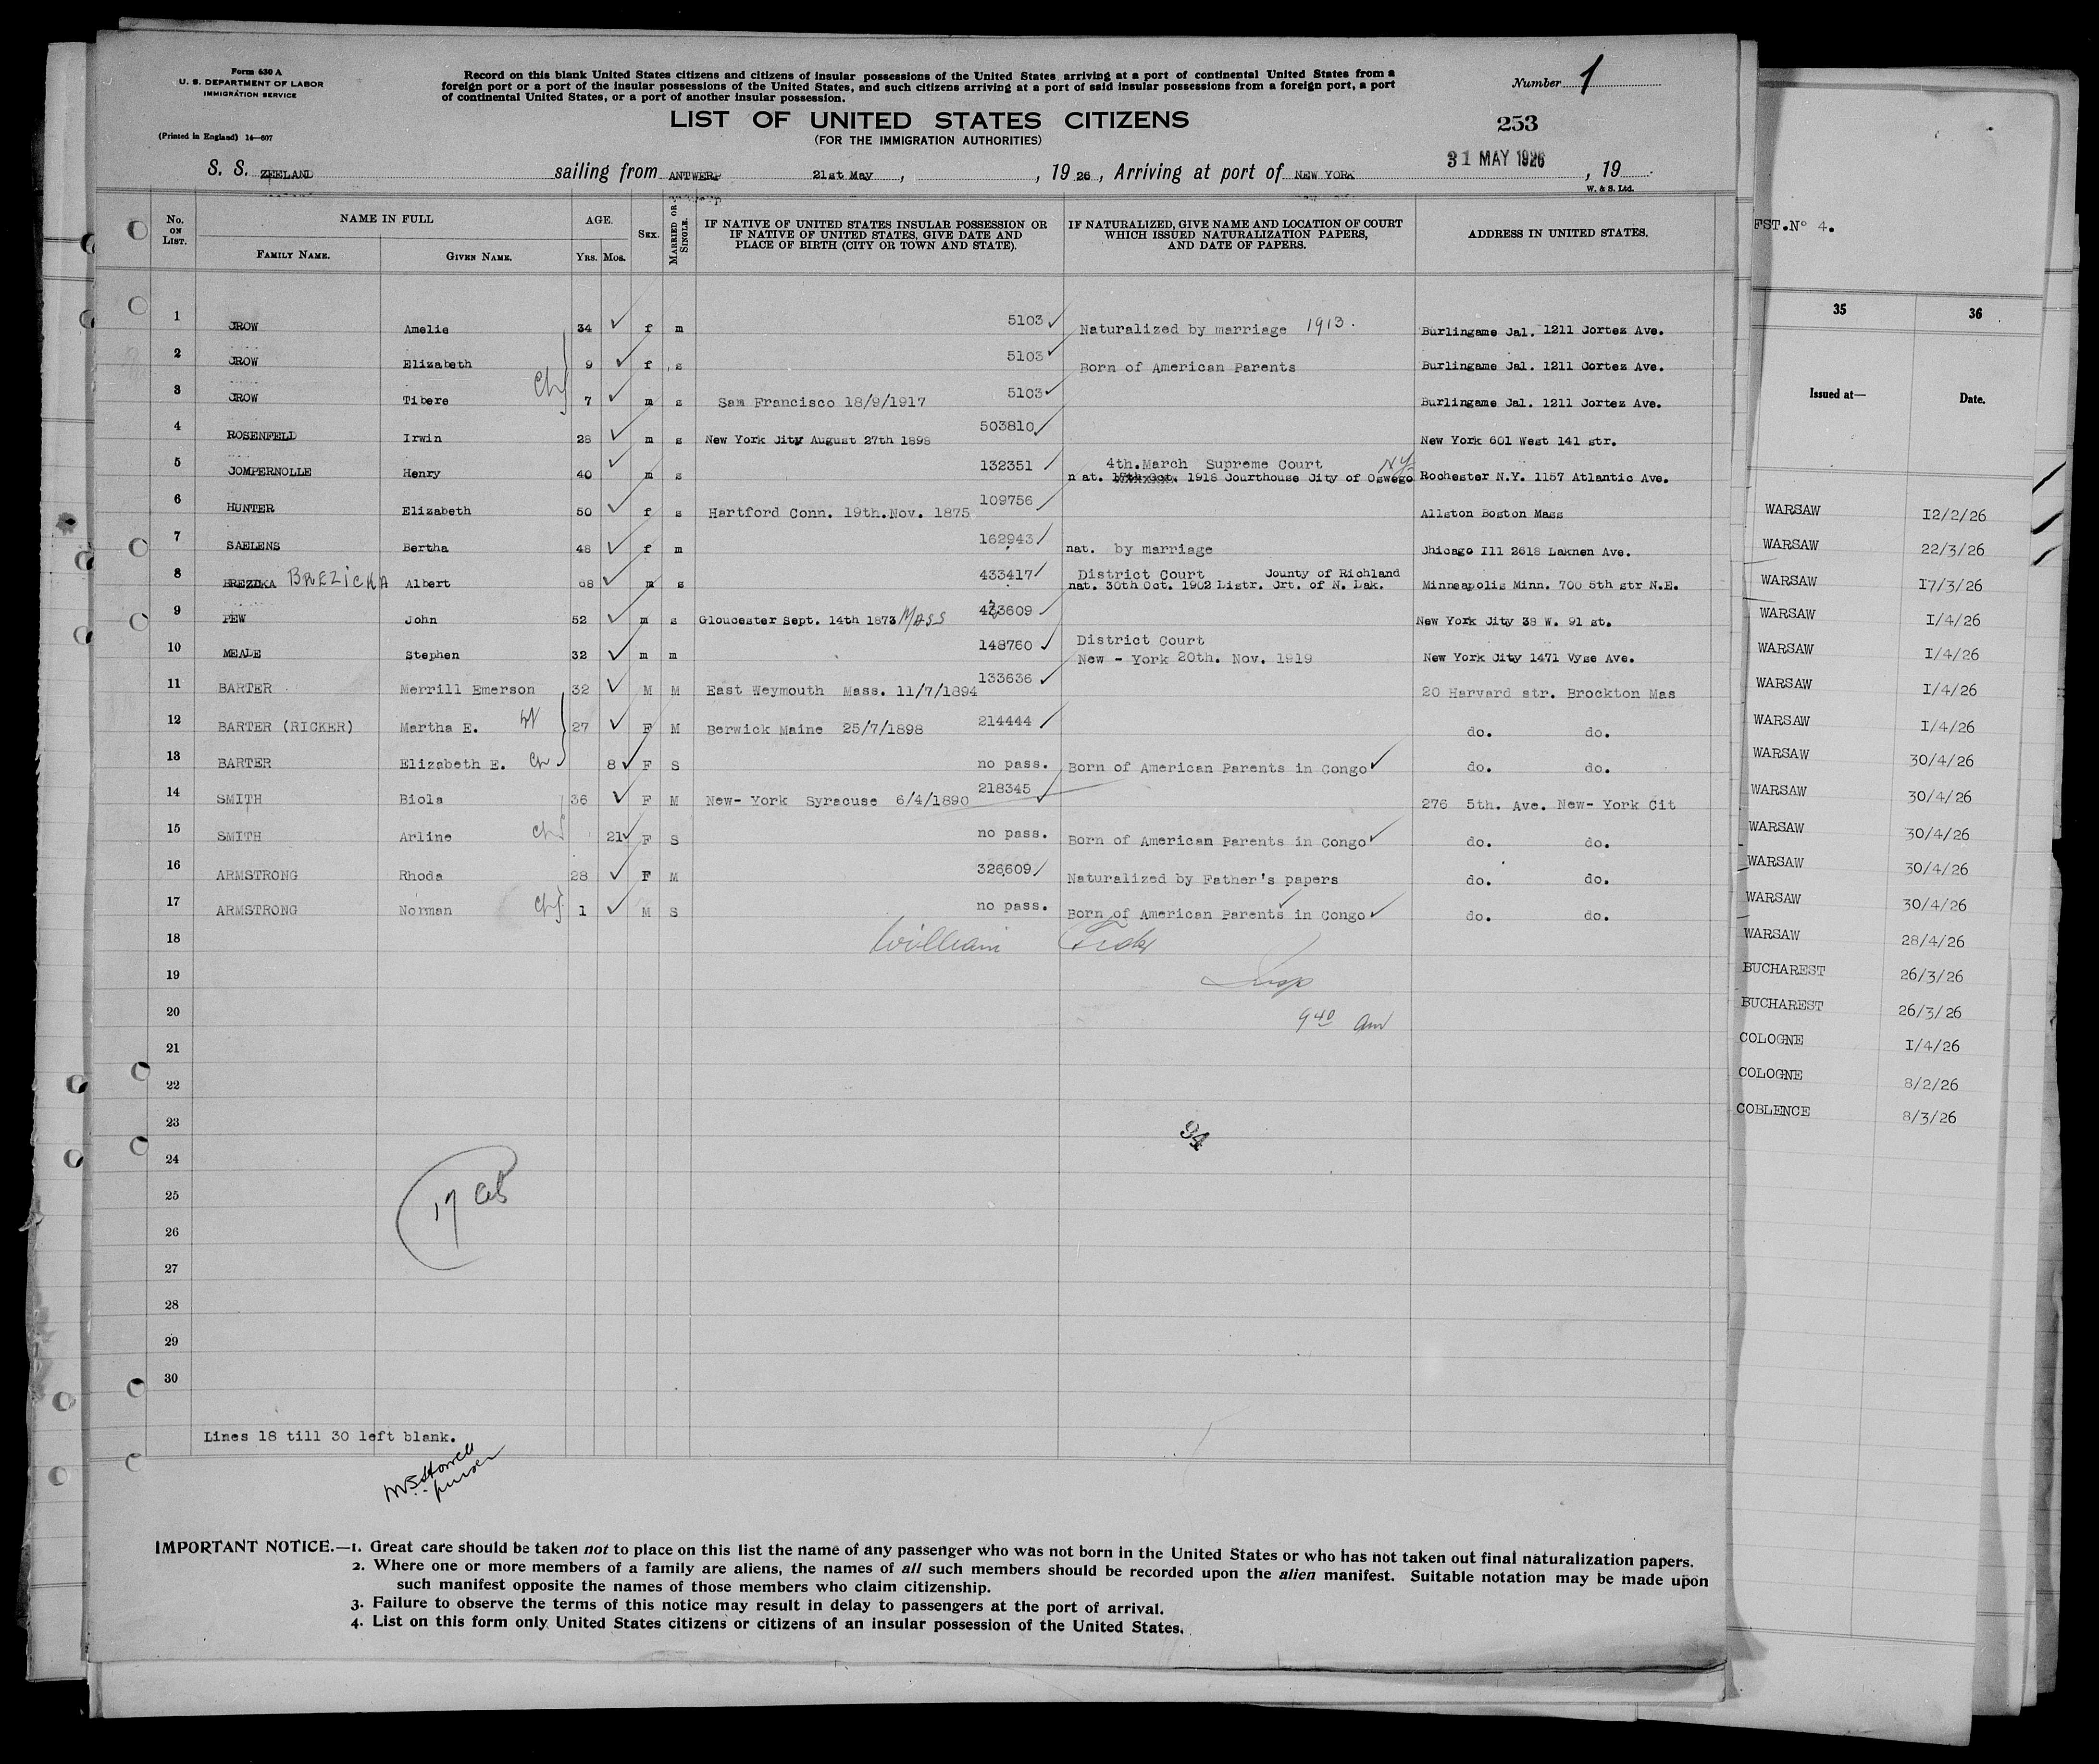 Form 630 A
U. S. DEPARTMENT OF LABOR
IMMIGRATION SERVICE
(Printed in England) 14—607
Record on this blank United States citizens and citizens of insular possessions of the United States arriving at a port of continental United States from a
foreign port or a port of the insular possessions of the United States, and such citizens arriving at a port of said insular possessions from a foreign port, a port
of continental United States, or a port of another insular possession.
Number 1
LIST OF UNITED STATES CITIZENS
(FOR THE IMMIGRATION AUTHORITIES)
253
S. S. ZEELAND sailing from ANTWERP 21st May, , 19 26, Arriving at port of NEW YORK 31 MAY 1926 , 19
W. & S. Ltd.
No. ON LIST. NAME IN FULL AGE. SEX. MARRIED OR SINGLE. IF NATIVE OF UNITED STATES INSULAR POSSESSION OR IF NATIVE OF UNITED STATES, GIVE DATE AND PLACE OF BIRTH (CITY OR TOWN AND STATE). IF NATURALIZED, GIVE NAME AND LOCATION OF COURT WHICH ISSUED NATURALIZATION PAPERS, AND DATE OF PAPERS. ADDRESS IN UNITED STATES.
FAMILY NAME. GIVEN NAME. YRS. MOS.
1 CROW Amelie 34 f m 5103 Naturalized by marriage 1913. Burlingame Cal. 1211 Cortez Ave.
2 CROW Elizabeth 9 f s 5103 Born of American Parents Burlingame Cal. 1211 Cortez Ave.
3 CROW Tibere Ch 7 m s Sam Francisco 18/9/1917 5103 Burlingame Cal. 1211 Cortez Ave.
4 ROSENFELD Irwin 28 m s New York City August 27th 1898 503810 New York 601 West 141 str.
5 COMPERNOLLE Henry 40 m s 132351 4th.March Supreme Court NY
nat. 1918 Courthouse City of Oswego Rochester N.Y. 1157 Atlantic Ave.
6 HUNTER Elizabeth 50 f s Hartford Conn. 19th.Nov. 1875 109756 Allston Boston Mass
7 SAELENS Bertha 48 f m 162943 nat. by marriage Chicago Ill 2618 Laknen Ave.
8 BREZIKA BREZICKA Albert 68 m s 433417 District Court County of Richland
nat. 30th Oct. 1902 Distr. Crt. of N. Dak. Minneapolis Minn. 700 5th str N.E.
9 PEW John 52 m s Gloucester Sept. 14th 1873 MASS 433609 New York City 38 W. 91 st.
10 MEADE Stephen 32 m m 148760 District Court
New - York 20th. Nov. 1919 New York City 1471 Vyse Ave.
11 BARTER Merrill Emerson 32 M M East Weymouth Mass. 11/7/1894 133636 20 Harvard str. Brockton Mas
12 BARTER (RICKER) Martha E. W 27 F M Berwick Maine 25/7/1898 214444 do. do.
13 BARTER Elizabeth E. Ch 8 F S no pass. Born of American Parents in Congo do. do.
14 SMITH Biola 36 F M New- York Syracuse 6/4/1890 218345 276 5th. Ave. New- York Cit
15 SMITH Arline Ch 21 F S no pass. Born of American Parents in Congo do. do.
16 ARMSTRONG Rhoda 28 F M 326609 Naturalized by Father's papers do. do.
17 ARMSTRONG Norman Ch 1 M S no pass. Born of American Parents in Congo do. do.
18 William
19 Insp
20 9 40 am
21
22
23 94
24
25 17
26
27
28
29
30
Lines 18 till 30 left blank.
purser
IMPORTANT NOTICE.—1. Great care should be taken not to place on this list the name of any passenger who was not born in the United States or who has not taken out final naturalization papers.
2. Where one or more members of a family are aliens, the names of all such members should be recorded upon the alien manifest. Suitable notation may be made upon
such manifest opposite the names of those members who claim citizenship.
3. Failure to observe the terms of this notice may result in delay to passengers at the port of arrival.
4. List on this form only United States citizens or citizens of an insular possession of the United States.
EST.No 4.
35 36
Issued at— Date.
WARSAW 12/2/26
WARSAW 22/3/26
WARSAW 17/3/26
WARSAW 1/4/26
WARSAW 1/4/26
WARSAW 1/4/26
WARSAW 1/4/26
WARSAW 30/4/26
WARSAW 30/4/26
WARSAW 30/4/26
WARSAW 30/4/26
WARSAW 30/4/26
WARSAW 28/4/26
BUCHAREST 26/3/26
BUCHAREST 26/3/26
COLOGNE 1/4/26
COLOGNE 8/2/26
COBLENCE 8/3/26